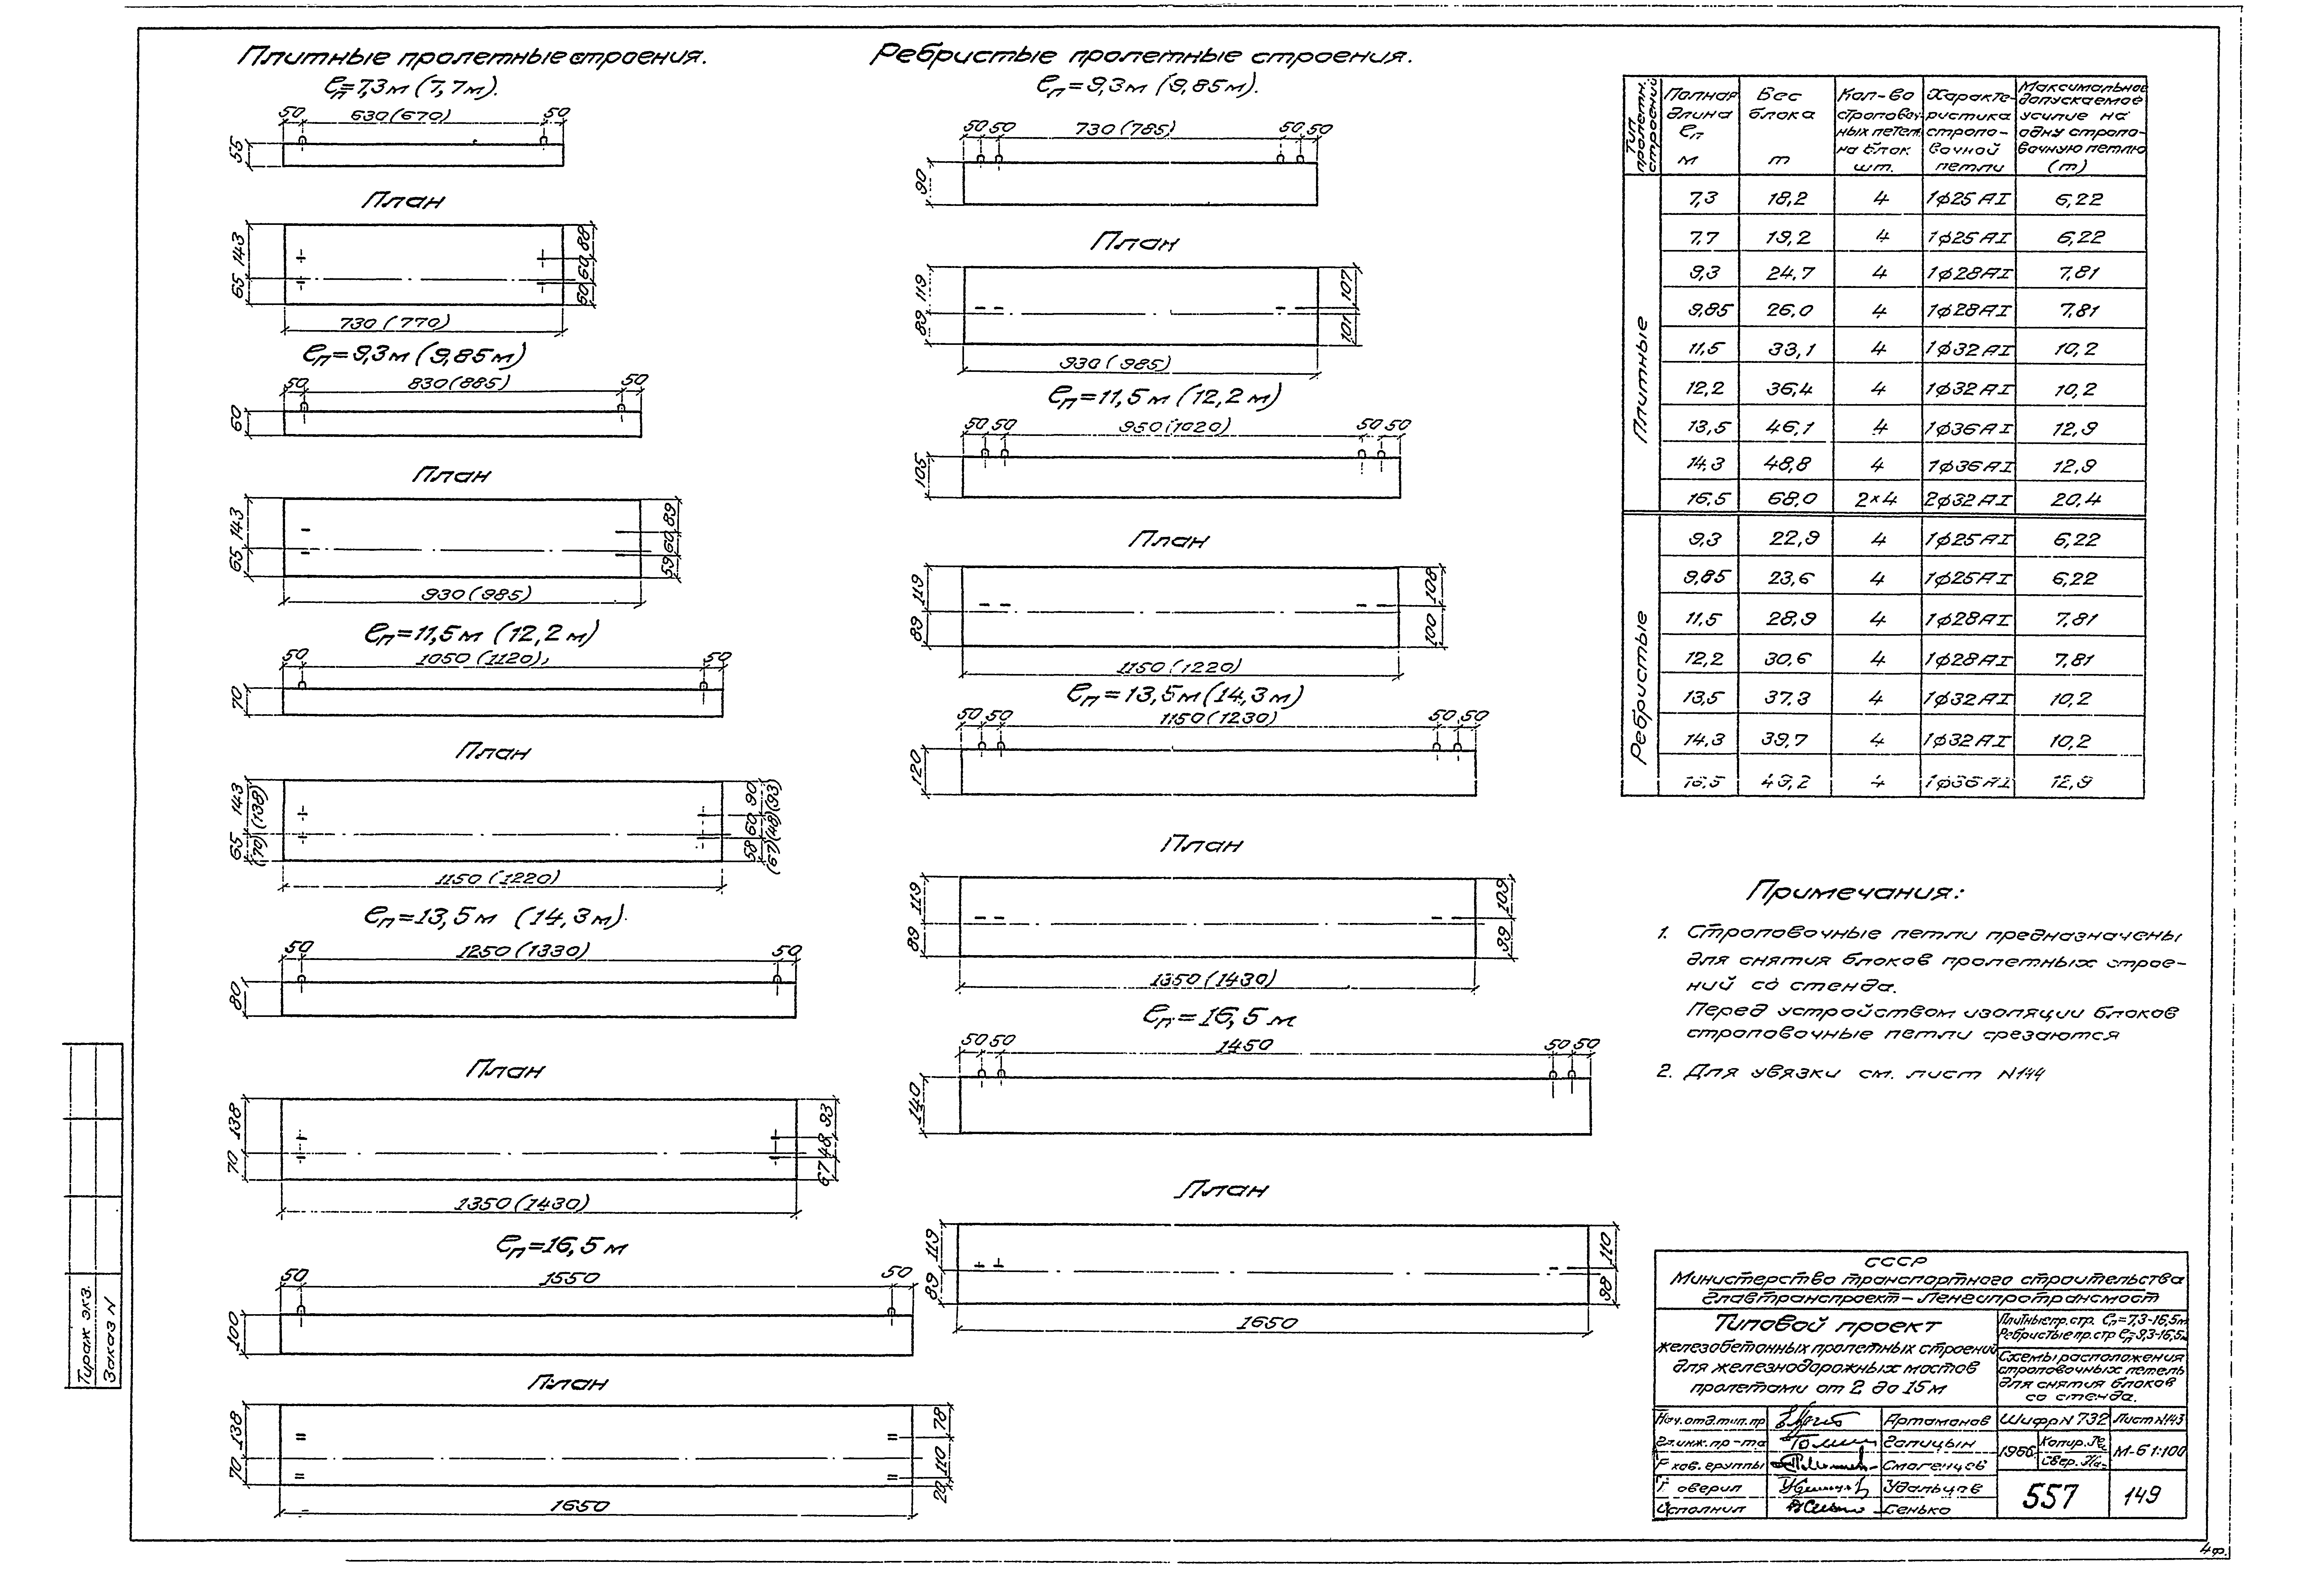 Плитные пролетные строения.
ℓп=7,3м (7,7м).
50 630(670) 50
55
План
143
65
88
60
60
730 (770)
ℓп=9,3м (9,85м)
50 830(885) 50
60
План
143
65
89
60
59
930 (985)
ℓп=11,5м (12,2м)
50 1050 (1120) 50
70
План
143 (138)
65 (70)
90 (93)
60 (48)
58 (67)
1150 (1220)
ℓп=13,5м (14,3м).
50 1250 (1330) 50
80
План
138
70
93
48
67
1350 (1430)
ℓп=16,5м
50 1550 50
100
План
138
70
78
110
20
1650
Ребристые пролетные строения.
ℓп=9,3м (9,85м).
50 50 730 (785) 50 50
90
План
119
89
107
101
930 (985)
ℓп=11,5м (12,2м)
50 50 950 (1020) 50 50
105
План
119
89
108
100
1150 (1220)
ℓп=13,5м (14,3м)
50 50 1150 (1230) 50 50
120
План
119
89
109
99
1350 (1430)
ℓп=16,5м
50 50 1450 50 50
140
План
119
89
110
98
1650
Тип пролетн. строений
Полная длина ℓп м
Вес блока т
Кол-во строповочных петель на блок шт.
Характеристика строповочной петли
Максимальное допускаемое усилие на одну строповочную петлю (т)
Плитные
7,3 18,2 4 1ф25АI 6,22
7,7 19,2 4 1ф25АI 6,22
9,3 24,7 4 1ф28АI 7,81
9,85 26,0 4 1ф28АI 7,81
11,5 33,1 4 1ф32АI 10,2
12,2 36,4 4 1ф32АI 10,2
13,5 46,1 4 1ф36АI 12,9
14,3 48,8 4 1ф36АI 12,9
16,5 68,0 2×4 2ф32АI 20,4
Ребристые
9,3 22,9 4 1ф25АI 6,22
9,85 23,6 4 1ф25АI 6,22
11,5 28,9 4 1ф28АI 7,81
12,2 30,6 4 1ф28АI 7,81
13,5 37,3 4 1ф32АI 10,2
14,3 39,7 4 1ф32АI 10,2
16,5 49,2 4 1ф36АI 12,9
Примечания:
1. Строповочные петли предназначены
для снятия блоков пролетных строе-
ний со стенда.
Перед устройством изоляции блоков
строповочные петли срезаются
2. Для увязки см. лист N144
СССР
Министерство транспортного строительства
Главтранспроект - Ленгипротрансмост
Типовой проект
железобетонных пролетных строений
для железнодорожных мостов
пролетами от 2 до 15м
Плитные пр. стр. ℓп=7,3-16,5м
Ребристые пр. стр ℓп 9,3-16,5м
Схемы расположения
строповочных петель
для снятия блоков
со стенда.
Нач. отд. тип. пр Артамонов
Гл. инж. пр-та Голицын
ков. группы Смогенцев
оверил Удальцов
Исполнил Сенько
Шифр N 732 Лист N143
1966 Копир.
Свер.
М-б 1:100
557 149
Тираж экз.
Заказ N
4ф.